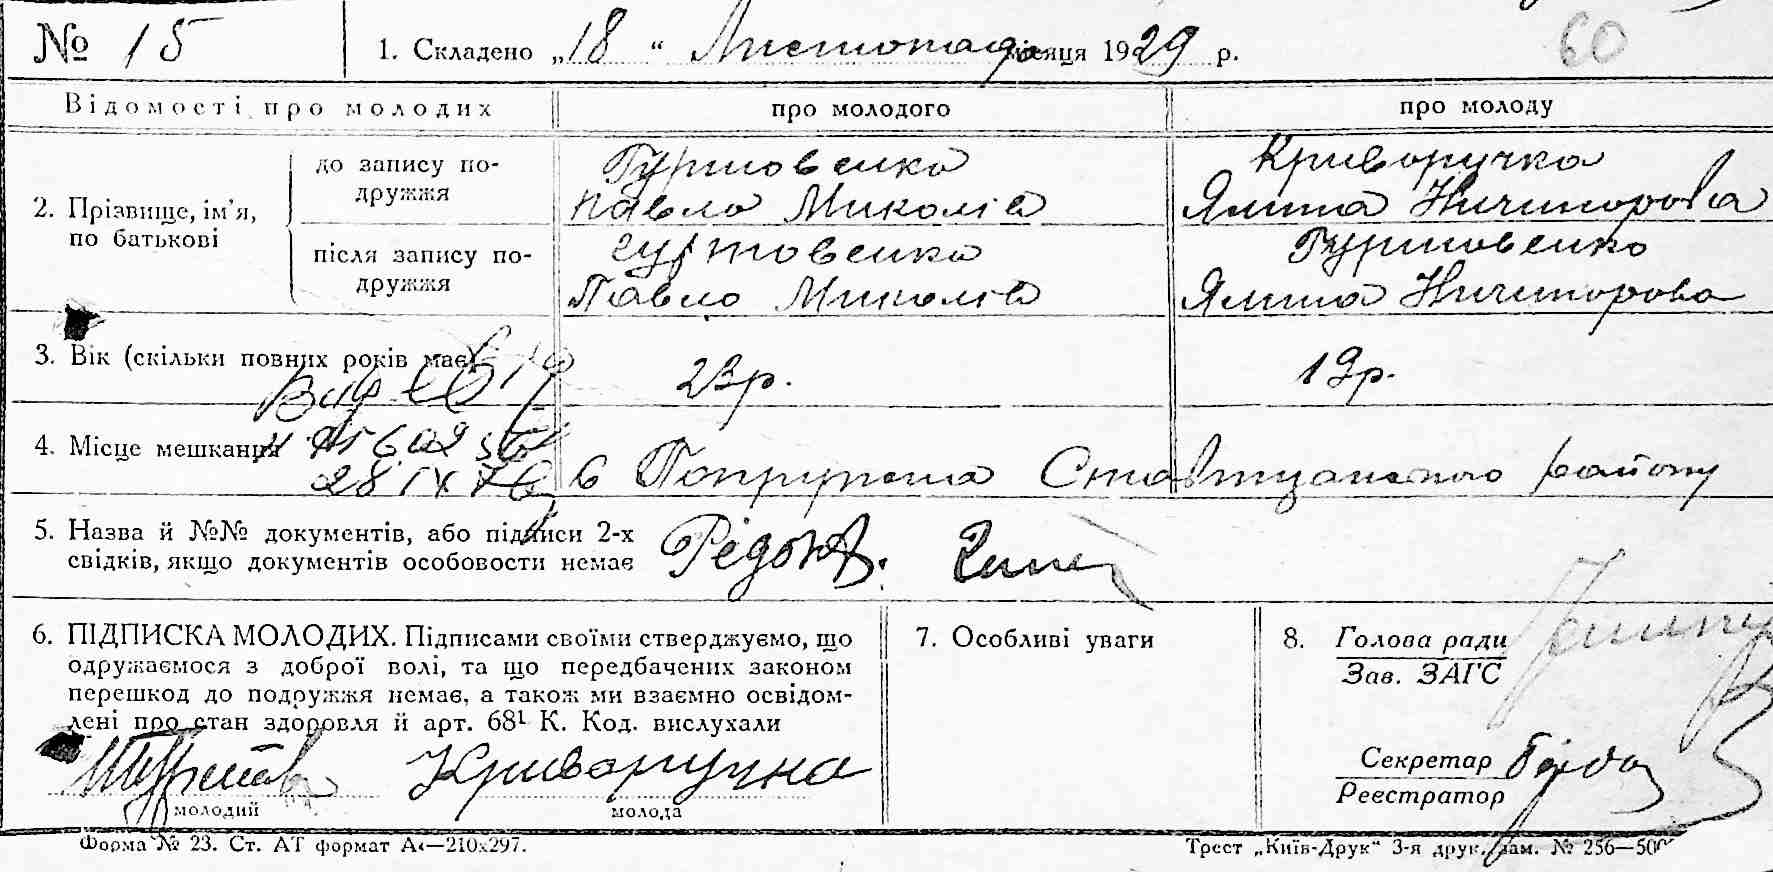 № 15
1. Складено „18“ Листопада місяця 1929 р.
60
Відомості про молодих
про молодого
про молоду
2. Прізвище, ім’я, по батькові
до запису подружжя
Гуртовенко
Павло Миколів
Криворучко
Ялина Ничипорова
після запису подружжя
Гуртовенко
Павло Миколів
Гуртовенко
Ялина Ничипорова
3. Вік (скільки повних років має)
23 р.
19 р.
4. Місце мешкання
28 IX 76
с Попружна Ставищанського району
5. Назва й №№ документів, або підписи 2-х
свідків, якщо документів особовости немає
6. ПІДПИСКА МОЛОДИХ. Підписами своїми стверджуємо, що
одружаємося з доброї волі, та що передбачених законом
перешкод до подружжя немає, а також ми взаємно освідом-
лені про стан здоровля й арт. 68¹ К. Код. вислухали
Криворучка
молодий
молода
7. Особливі уваги
8. Голова ради
Зав. ЗАГС
Секретар
Реєстратор
Форма № 23. Ст. АТ формат А4—210х297.
Трест „Київ-Друк“ 3-я друк. Зам. № 256—500